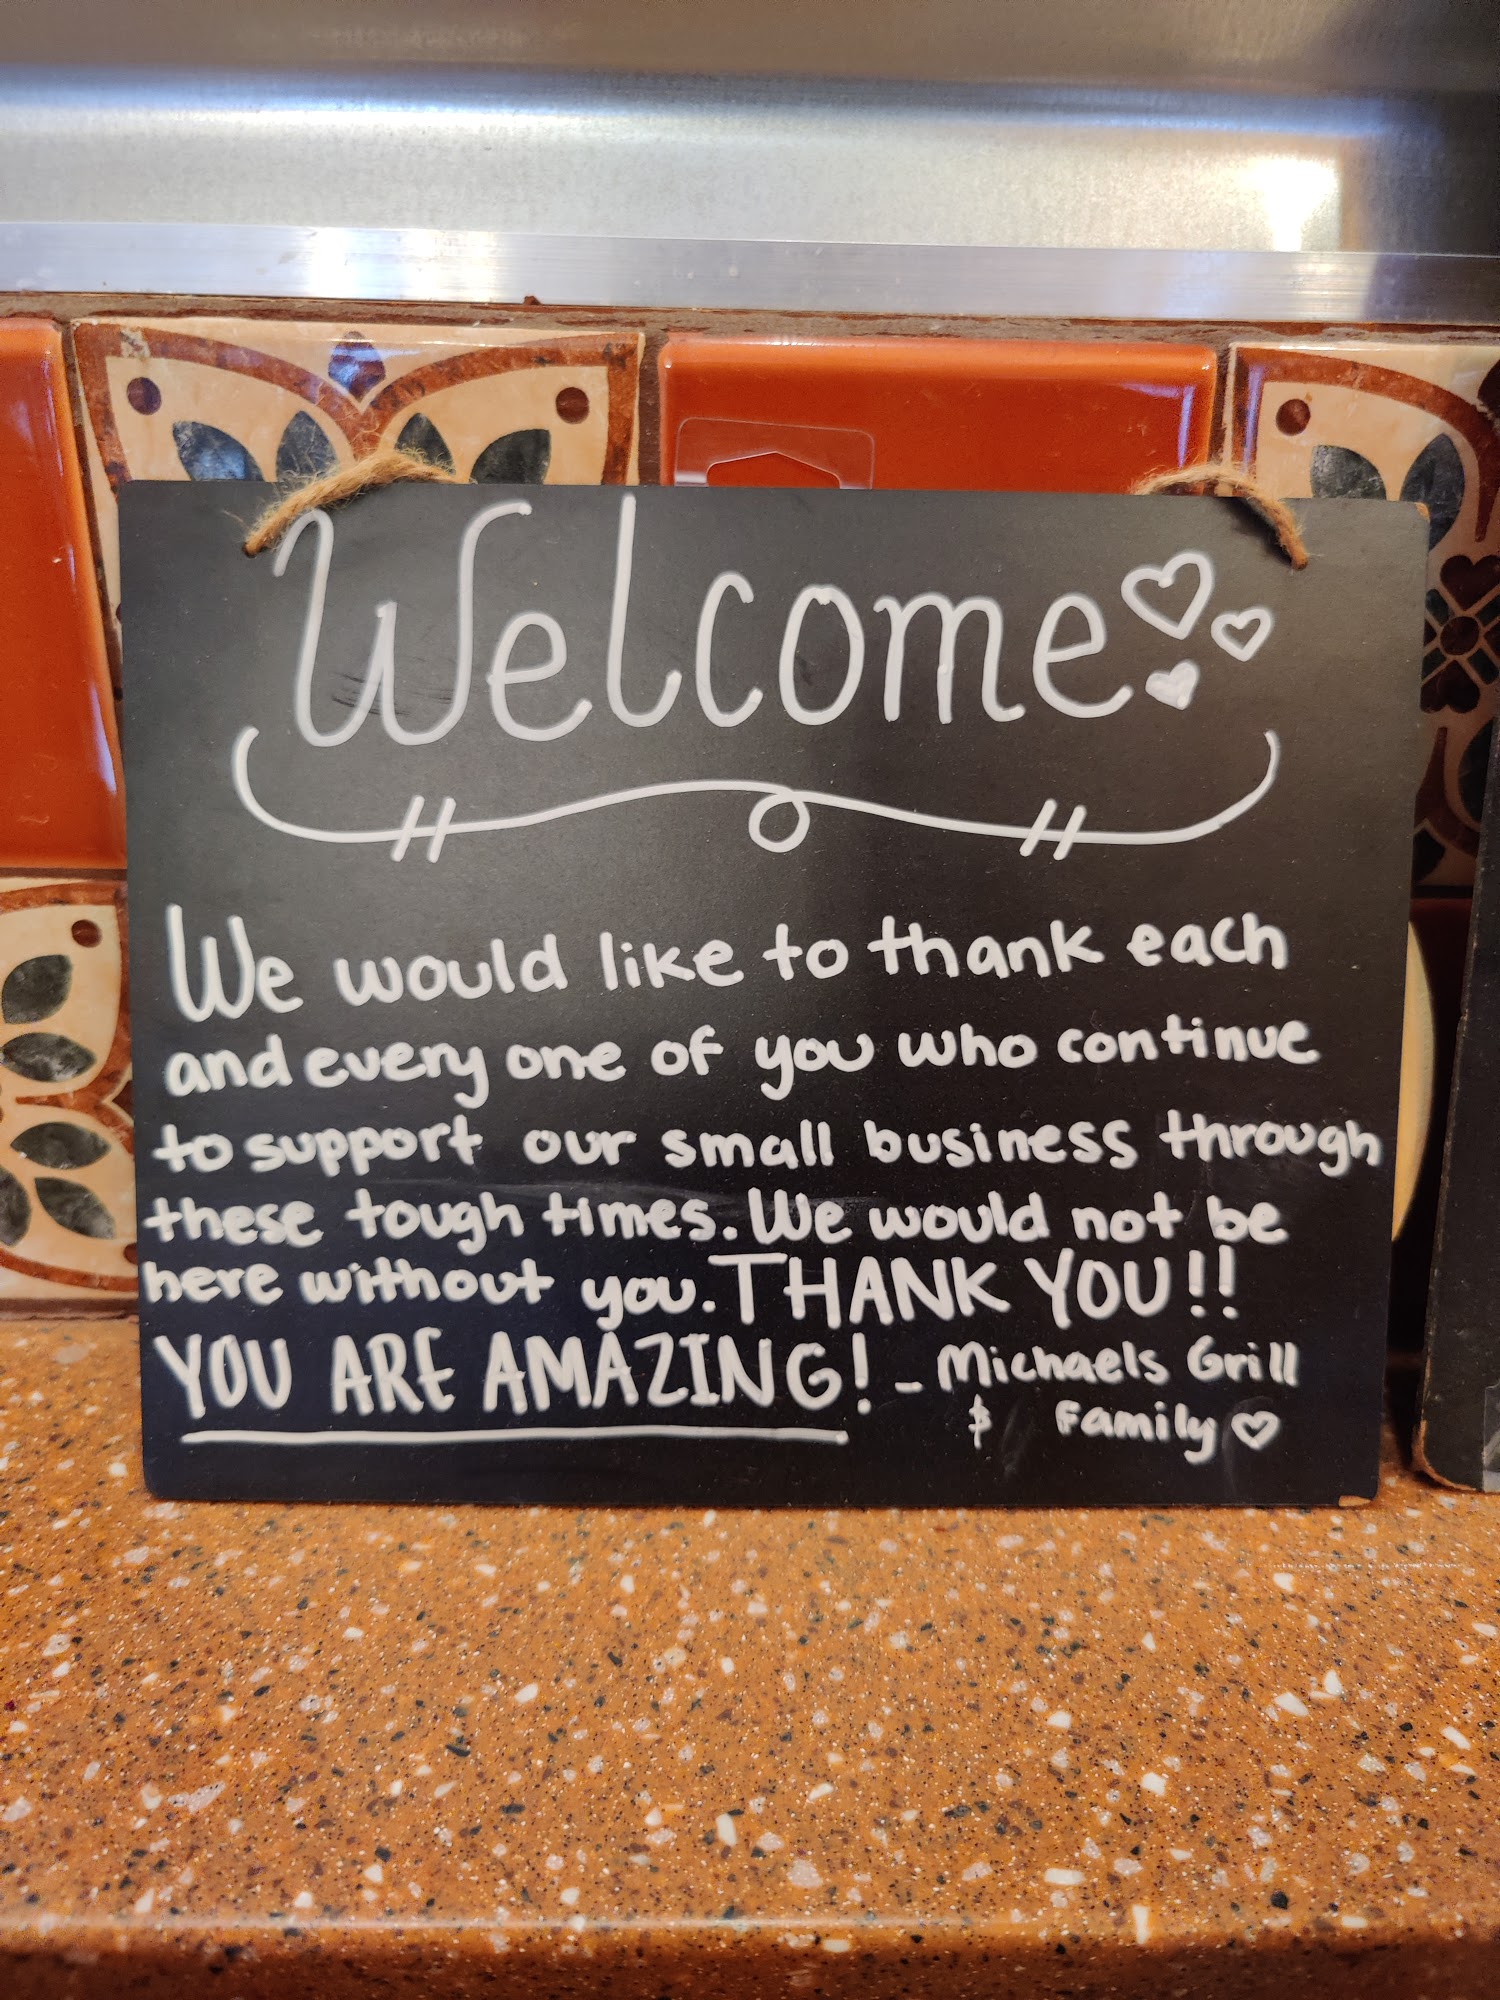 Welcome
We would like to thank each
and every one of you who continue
to support our small business through
these tough times. We would not be
here without you. THANK YOU!!
YOU ARE AMAZING! - Michaels Grill
& Family